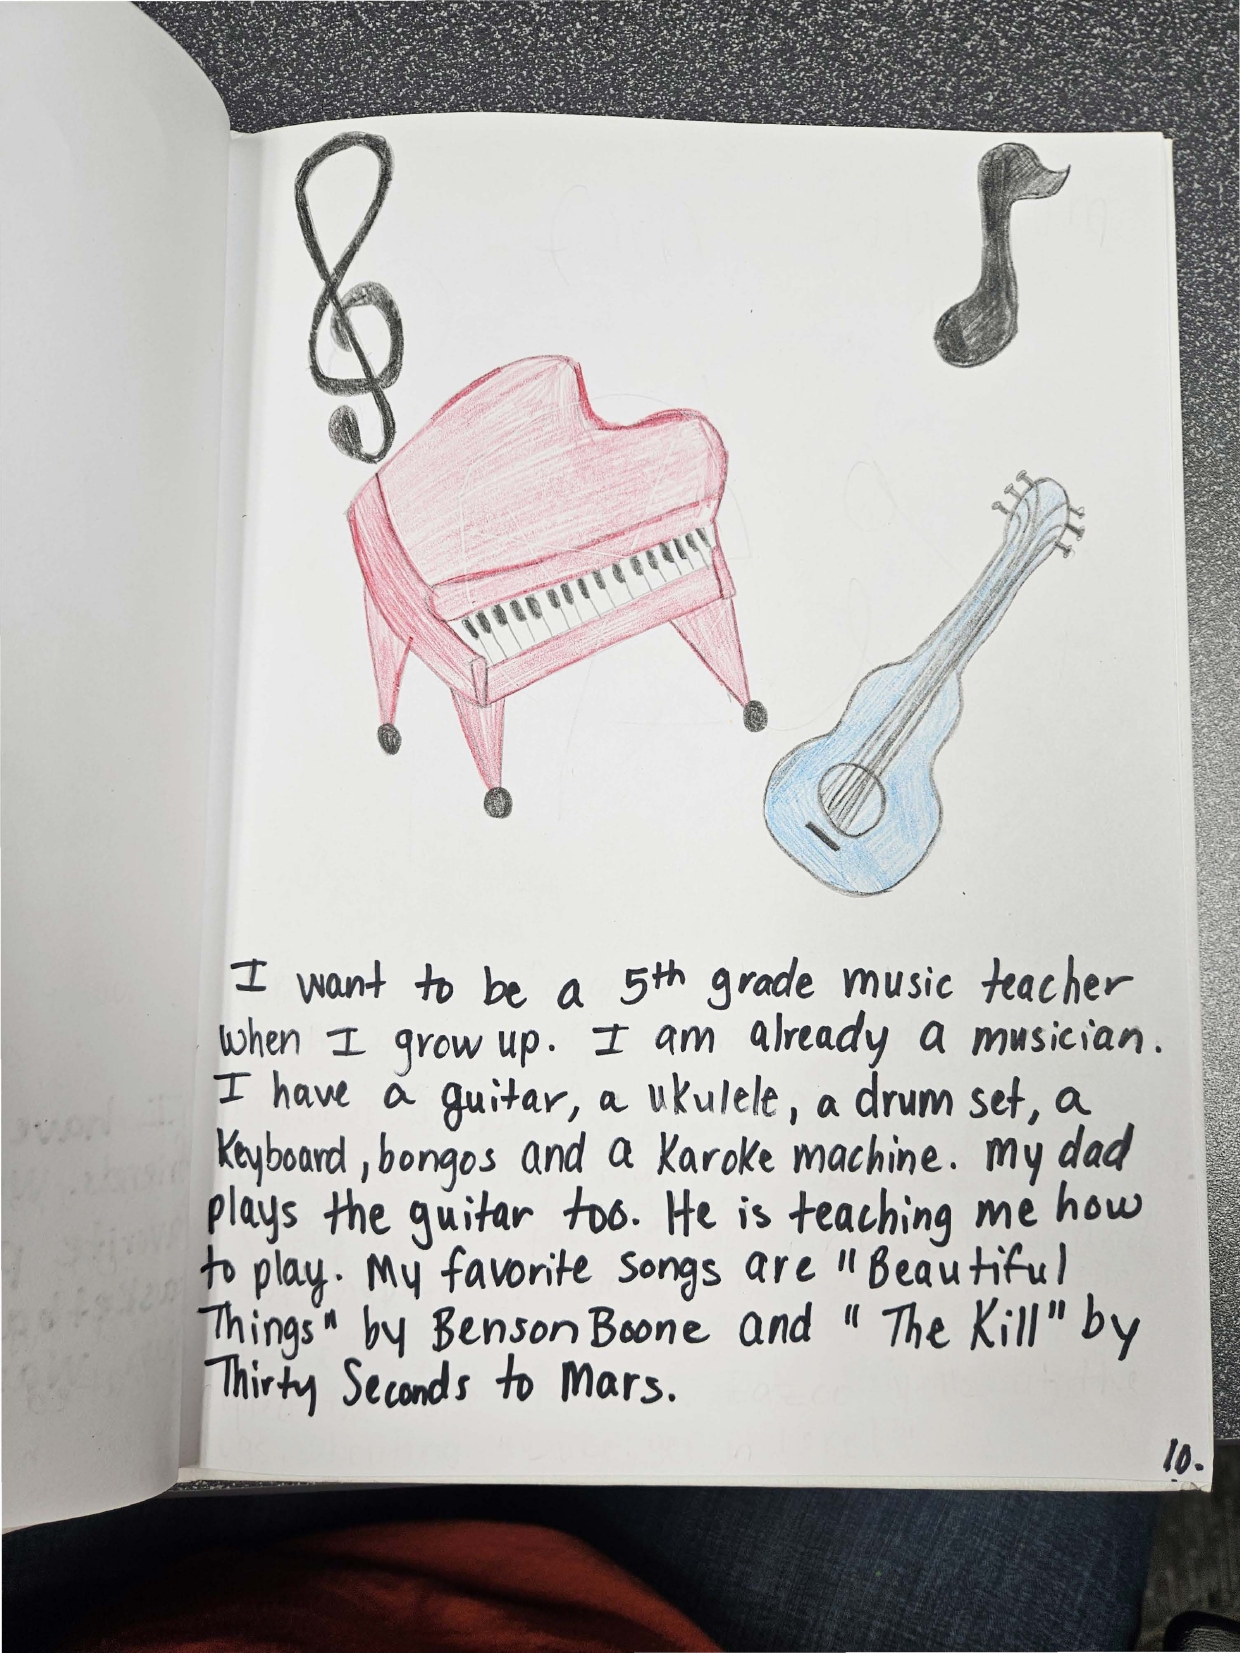 I want to be a 5th grade music teacher
when I grow up. I am already a musician.
I have a guitar, a ukulele, a drum set, a
keyboard, bongos and a Karoke machine. My dad
plays the guitar too. He is teaching me how
to play. My favorite songs are "Beautiful
Things" by Benson Boone and "The Kill" by
Thirty Seconds to Mars.
10.